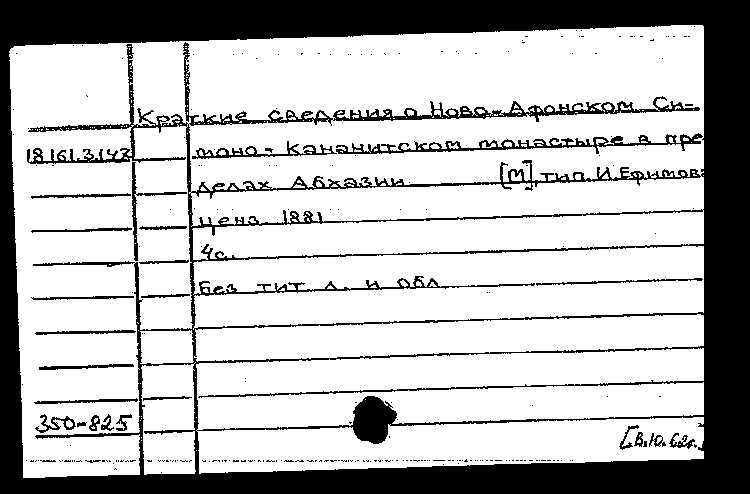 Краткие сведения о Ново-Афонском Си-
18.161.3.147 моно-Кананитском монастыре в пре
делах Абхазии [М], тип. И. Ефимов
цена 1881
4с.
Без тит л. и обл
350-825
[В.Ю. 62г.]